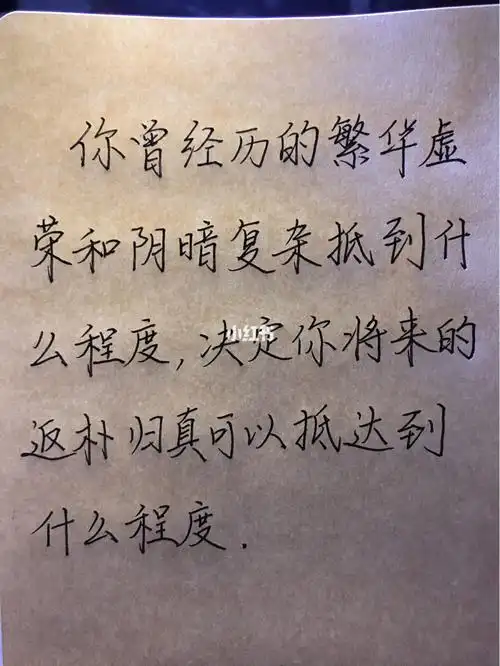 你曾经历的繁华虚
荣和阴暗复杂抵到什
么程度,决定你将来的
返朴归真可以抵达到
什么程度.
小红书